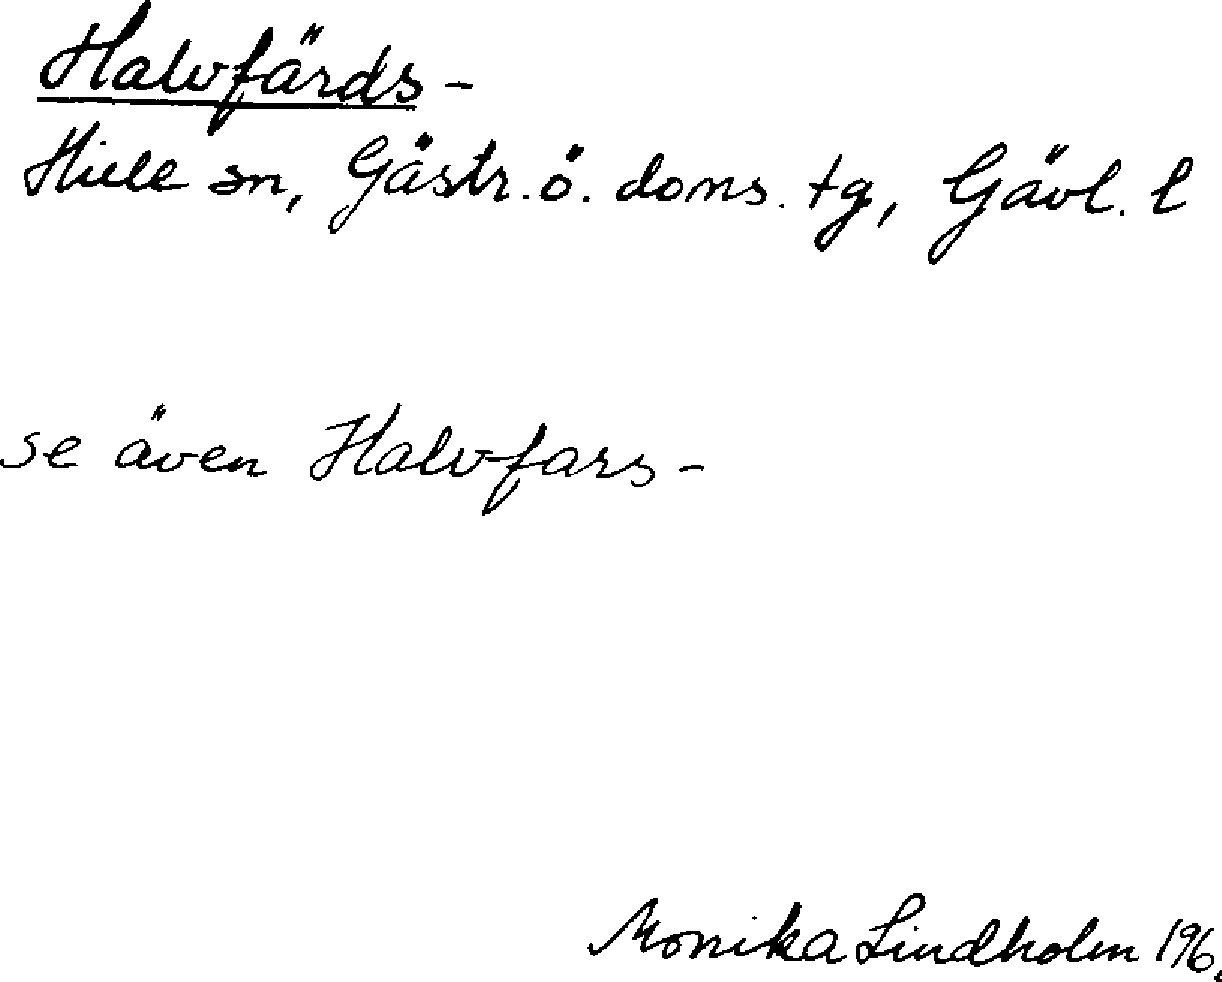 Halvfärds-
Hille sn, Gästr. ö. doms. tg, Gävl. l
se även Halvfars-
Monika Lindholm 196